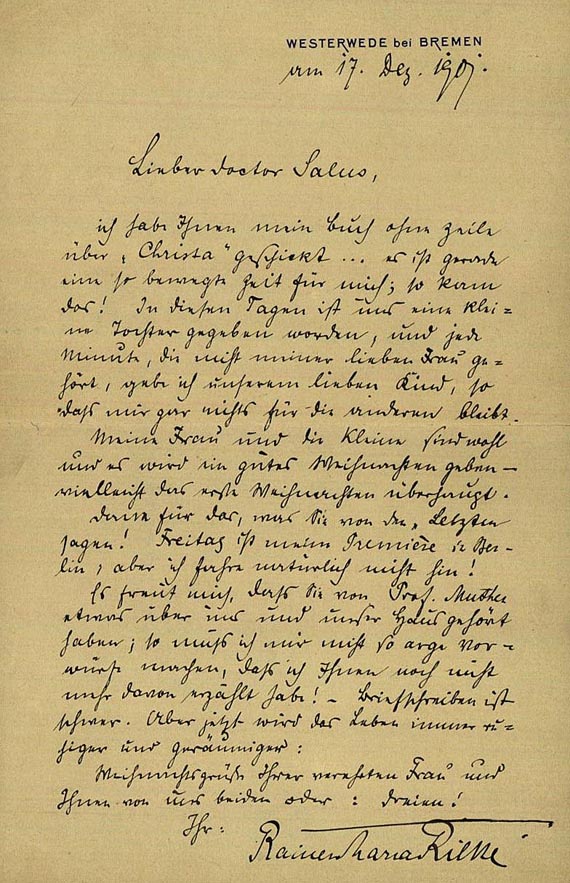 WESTERWEDE bei BREMEN
am 17. Dez. 1901.
Lieber Doctor Salus,
ich habe Ihnen mein Buch ohne Zeile
über „Christa“ geschickt ... es ist gerade
eine so bewegte Zeit für mich; so kam
das! In diesen Tagen ist uns eine klei=
ne Tochter gegeben worden, und jede
Minute, die nicht meiner lieben Frau ge=
hört, gebe ich unserem lieben Kind, so
daß mir gar nichts für die anderen bleibt.
Meine Frau und die Kleine sind wohl
und es wird ein gutes Weihnachten geben –
vielleicht das erste Weihnachten überhaupt.
Dank für das, was Sie von den „Letzten
sagen! Freitag ist meine Première in Ber=
lin, aber ich fahre natürlich nicht hin!
Es freut mich, daß Sie von Prof. Muther
etwas über uns und unser Haus gehört
haben; so muß ich mir nicht so arge Vor=
würfe machen, daß ich Ihnen noch nicht
mehr davon erzählt habe! – Briefschreiben ist
schwer. Aber jetzt wird das Leben immer ru=
higer und geräumiger:
Weihnachtsgrüße Ihrer verehrten Frau und
Ihnen von uns beiden oder : dreien!
Ihr:
Rainer Maria Rilke